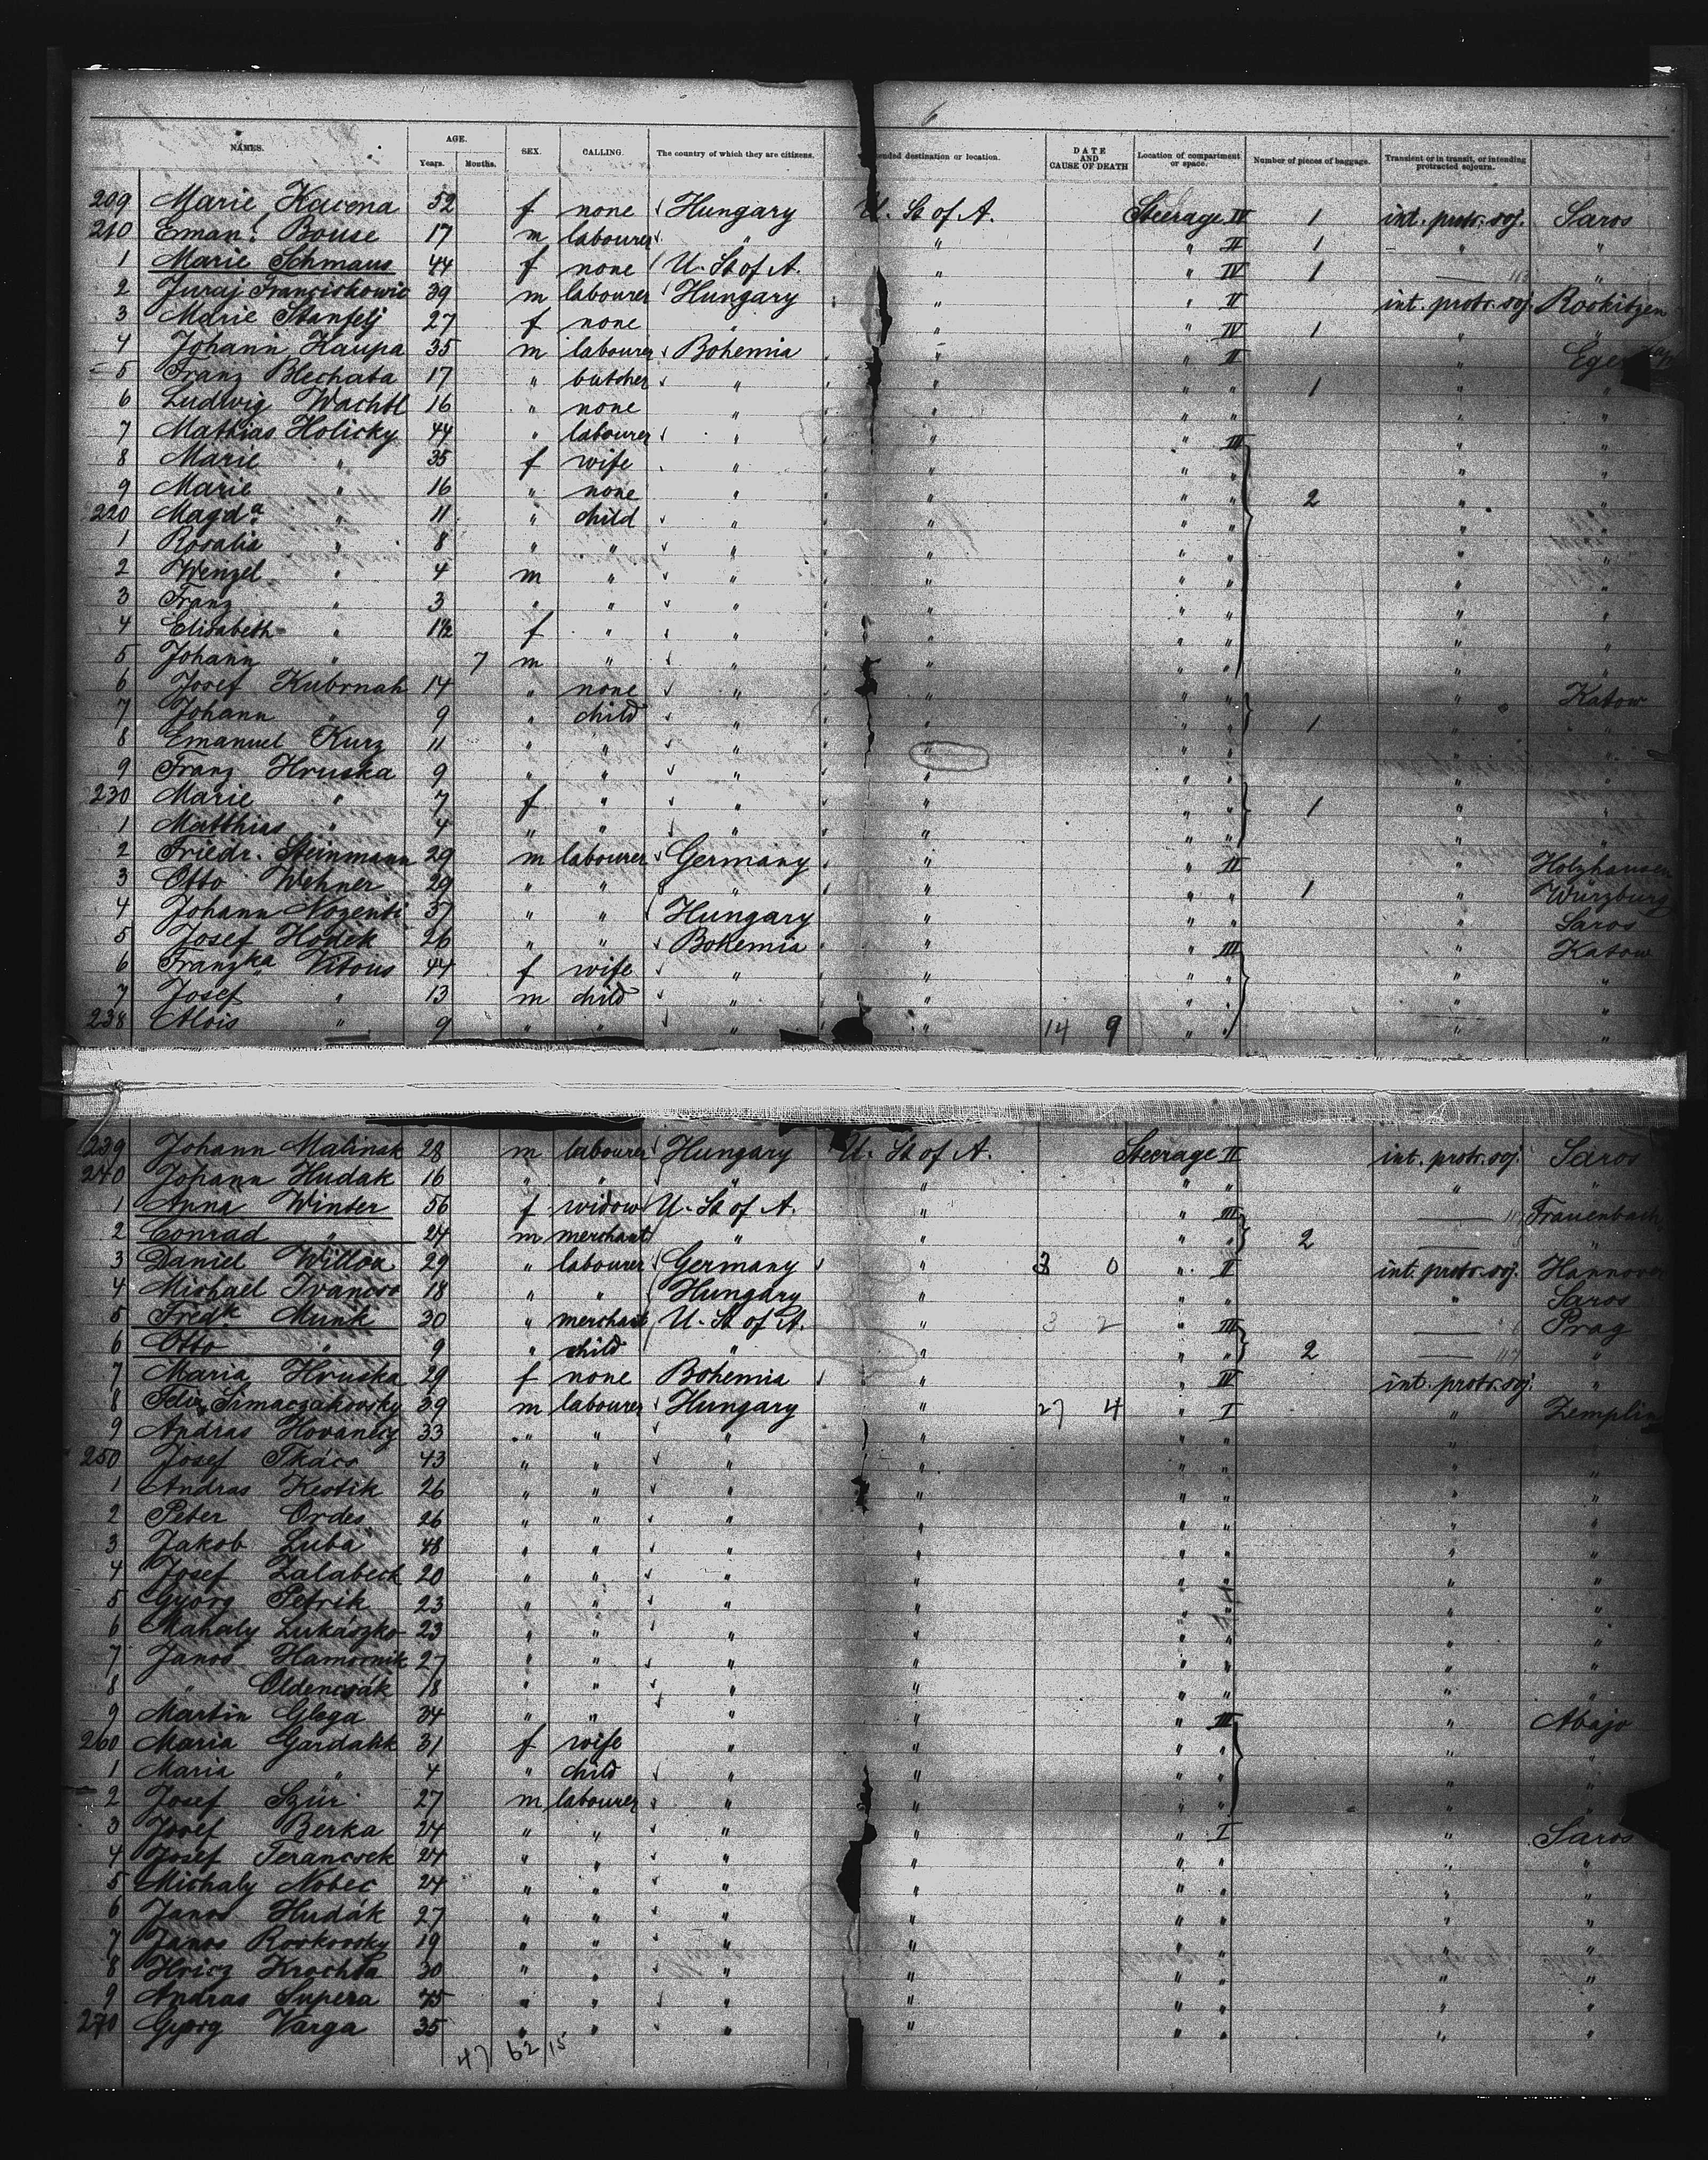 6
NAMES. AGE. Years. Months. SEX. CALLING. The country of which they are citizens. ended destination or location. DATE AND CAUSE OF DEATH Location of compartment or space. Number of pieces of baggage. Transient or in transit, or intending protracted sojourn.
209 Marie Kacena 52 f none Hungary U. St of A. Steerage IV 1 int. protr. soj. Saros
210 Eman. Bouse 17 m labourer " " " II 1 " "
1 Marie Schmaus 44 f none U. St of A. " " IV 1 — "
2 Juraj Franciskowic 39 m labourer Hungary " " II int. protr. soj. Rookitzen
3 Marie Stanfelj 27 f none " " " IV 1 " "
4 Johann Kaupa 35 m labourer Bohemia " " II " Eger
5 Franz Blechata 17 " butcher " " " " 1 " "
6 Ludwig Wachtl 16 " none " " " " " "
7 Mathias Holicky 44 " labourer " " " III " "
8 Marie " 35 f wife " " " " " "
9 Marie " 16 " none " " " " 2 " "
220 Magda " 11 " child " " " " " "
1 Rosalia " 8 " " " " " " " "
2 Wenzel " 4 m " " " " " " "
3 Franz " 3 " " " " " " " "
4 Elisabeth " 1½ f " " " " " " "
5 Johann " 7 m " " " " " " "
6 Josef Kubrnah 14 " none " " " " " Katow
7 Johann " 9 " child " " " " 1 " "
8 Emanuel Kurz 11 " " " " " " " "
9 Franz Hruska 9 " " " " " " " "
230 Marie " 7 f " " " " " 1 " "
1 Matthias " 4 " " " " " " " "
2 Friedr. Steinmann 29 m labourer Germany " " II " Holzhausen
3 Otto Wehner 29 " " " " " " 1 " Würzburg
4 Johann Nozenti 37 " " Hungary " " " " Saros
5 Josef Hodek 26 " " Bohemia " " III " Katow
6 Franzka Vitous 44 f wife " " " " " "
7 Josef " 13 m child " " " " " "
238 Alois " 9 " " " " 14 9 " " " "
239 Johann Malinak 28 m labourer Hungary U. St of A. Steerage II int. protr. soj. Saros
240 Johann Hudak 16 " " " " " " " "
1 Anna Winter 56 f widow U. St of A. " " III — Frauenbach
2 Conrad " 24 m merchant " " " " 2 — "
3 Daniel Willox 29 " labourer Germany " 3 0 " II int. protr. soj. Hannover
4 Michael Ivancso 18 " " Hungary " " " " Saros
5 Fredk Munk 30 " merchant U. St of A. " 3 2 " III — Prag
6 Otto " 9 " child " " " " 2 — "
7 Maria Hruska 29 f none Bohemia " " IV int. protr. soj. "
8 Felix Simaczakovsky 39 m labourer Hungary " 27 4 " I " Zemplin
9 Andras Hovanecz 33 " " " " " " " "
250 Josef Tkács 43 " " " " " " " "
1 Andras Kestik 26 " " " " " " " "
2 Peter Ordes 26 " " " " " " " "
3 Jakob Luba 48 " " " " " " " "
4 Josef Zalabeck 20 " " " " " " " "
5 Györg Petrik 23 " " " " " " " "
6 Mahaly Lukászko 23 " " " " " " " "
7 Janos Hamornik 27 " " " " " " " "
8 " Oldencsák 18 " " " " " " " "
9 Martin Gloga 34 " " " " " III " Abajo
260 Maria Gardahk 31 f wife " " " " "
1 Maria " 4 " child " " " " " "
2 Josef Szür 27 m labourer " " " " " "
3 Josef Berka 24 " " " " " I " Saros
4 Josef Ferancsek 24 " " " " " " " "
5 Michaly Nobec 24 " " " " " " " "
6 Janos Hudák 27 " " " " " " " "
7 Janos Rovkovsky 19 " " " " " " " "
8 Hricz Krochta 30 " " " " " " " "
9 Andras Supera 45 " " " " " " " "
270 Györg Varga 35 " " " " " " " "
47 62 15